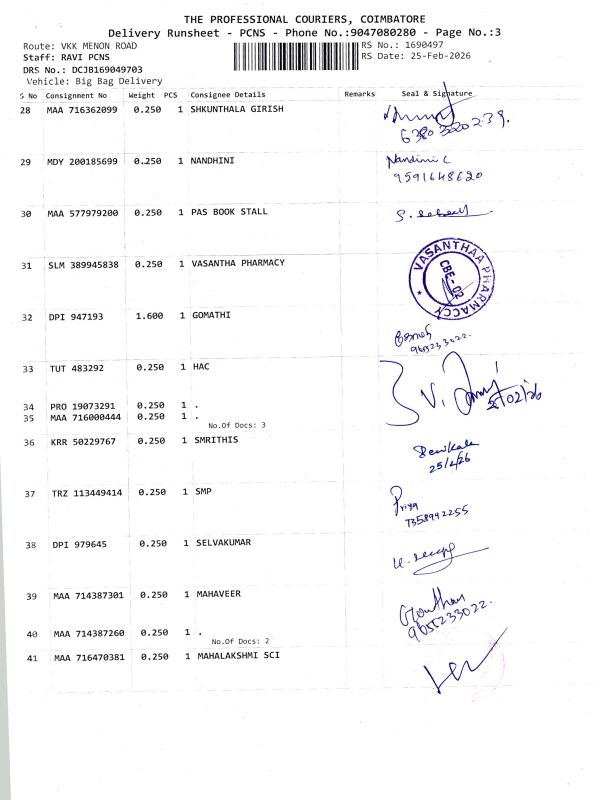 THE PROFESSIONAL COURIERS, COIMBATORE
Delivery Runsheet - PCNS - Phone No.:9047080280 - Page No.:3
Route: VKK MENON ROAD
RS No.: 1690497
Staff: RAVI PCNS
RS Date: 25-Feb-2026
DRS No.: DCJB169049703
Vehicle: Big Bag Delivery
S No Consignment No Weight PCS Consignee Details Remarks Seal & Signature
28 MAA 716362099 0.250 1 SHKUNTHALA GIRISH
29 MDY 200185699 0.250 1 NANDHINI Nandini C
9591648620
30 MAA 577979200 0.250 1 PAS BOOK STALL
31 SLM 389945838 0.250 1 VASANTHA PHARMACY
VASANTHAA PHARMACCY
CBE-02
32 DPI 947193 1.600 1 GOMATHI
9655233022.
33 TUT 483292 0.250 1 HAC
34 PRO 19073291 0.250 1 .
35 MAA 716000444 0.250 1 .
No.Of Docs: 3
36 KRR 50229767 0.250 1 SMRITHIS
25/2/26
37 TRZ 113449414 0.250 1 SMP Priya
7358942255
38 DPI 979645 0.250 1 SELVAKUMAR
39 MAA 714387301 0.250 1 MAHAVEER Goutham
9655233022.
40 MAA 714387260 0.250 1 .
No.Of Docs: 2
41 MAA 716470381 0.250 1 MAHALAKSHMI SCI